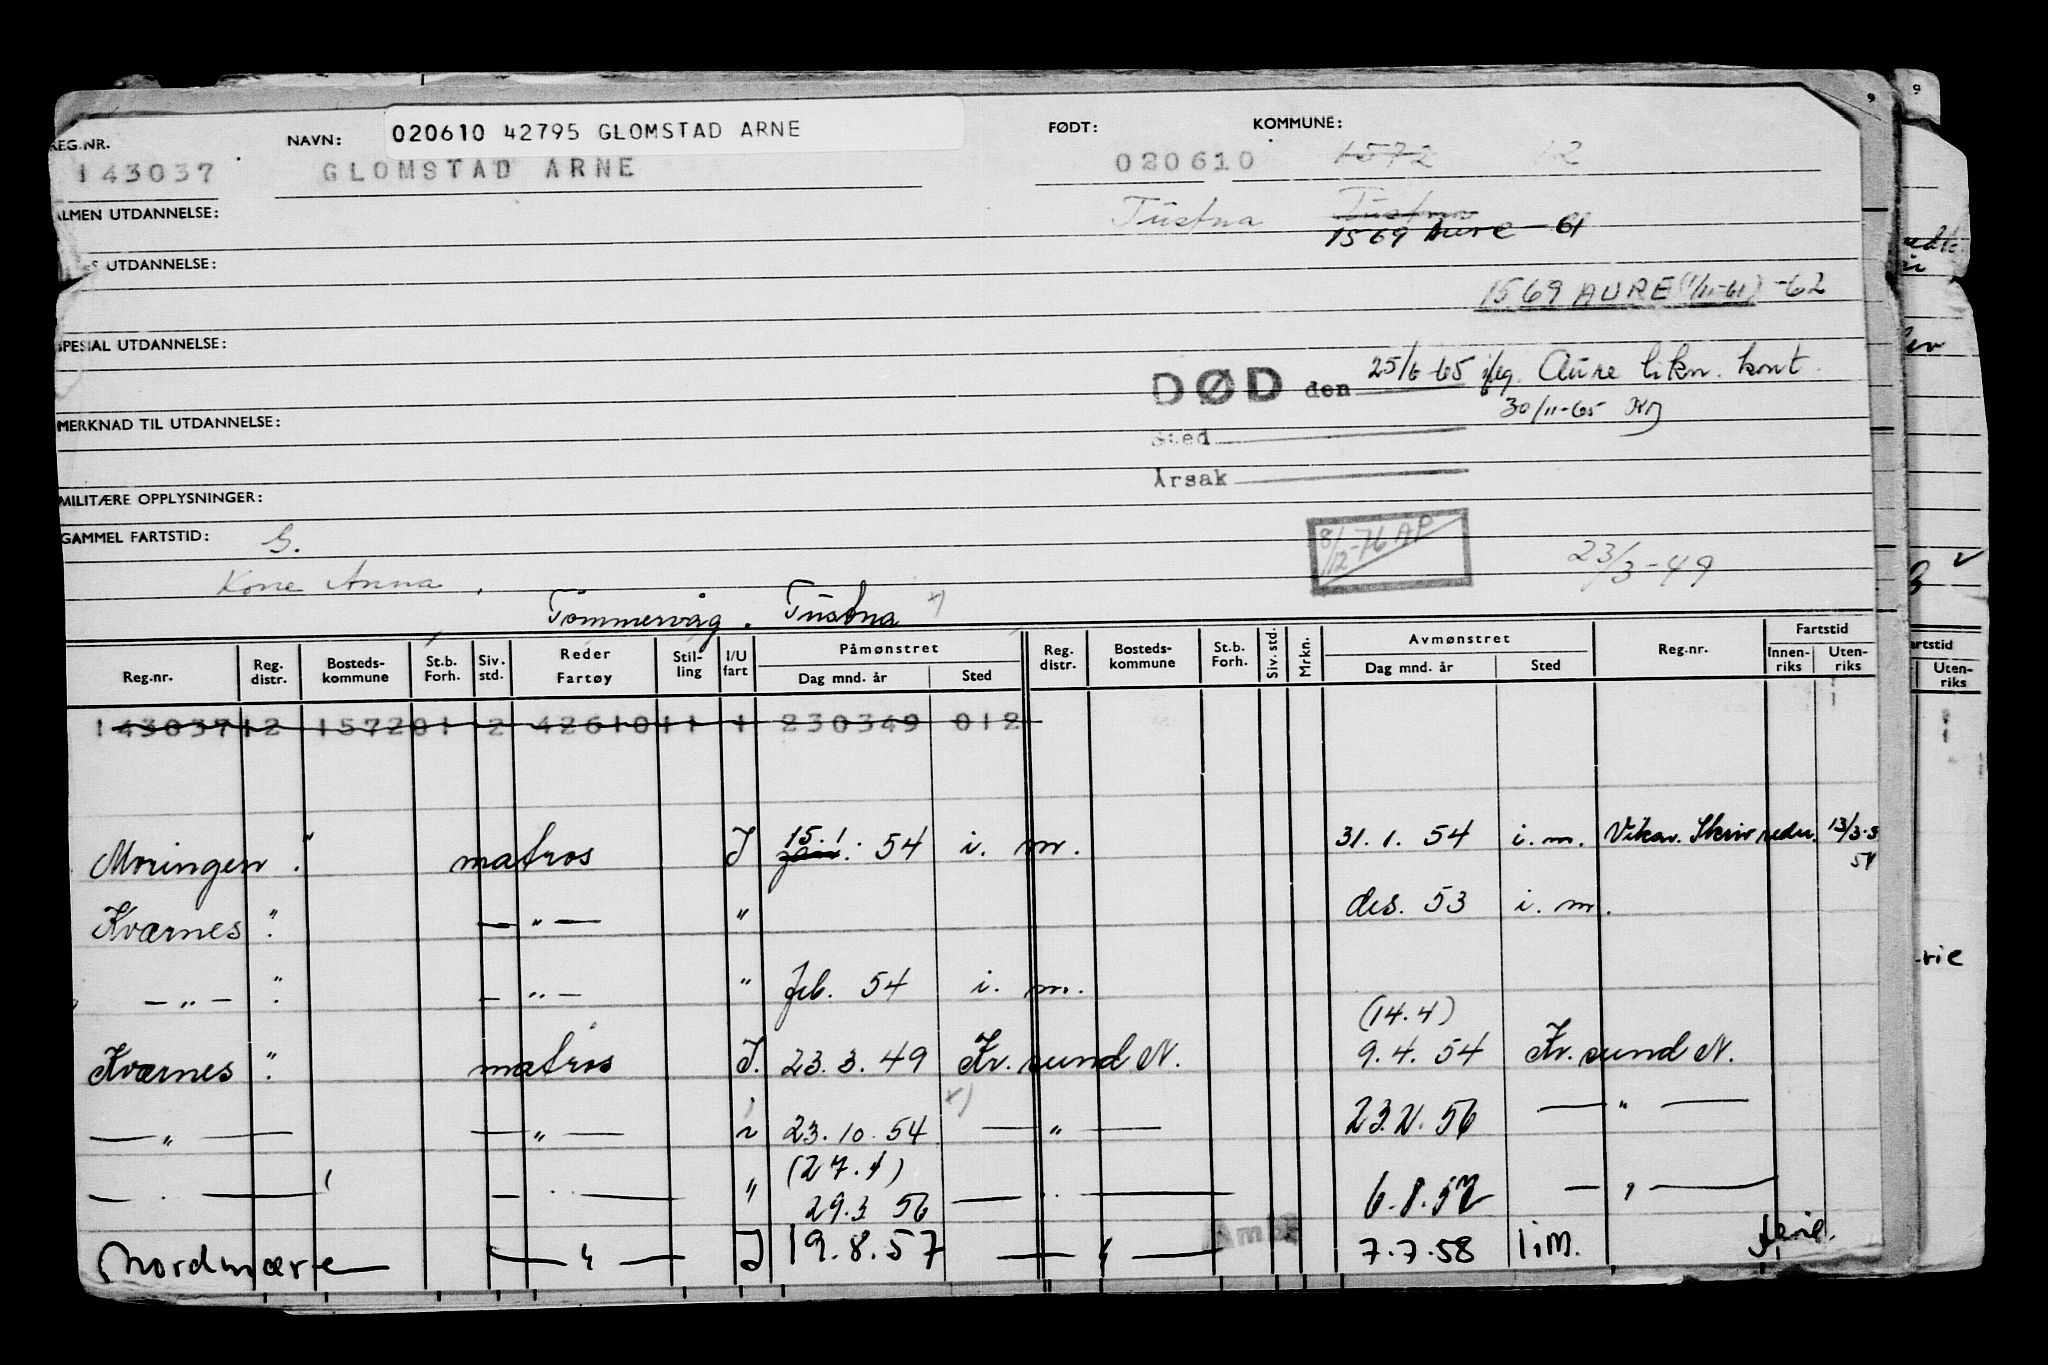 REG.NR. NAVN: 020610 42795 GLOMSTAD ARNE FØDT: KOMMUNE:
143037 GLOMSTAD ARNE 020610 1572 12
ALMEN UTDANNELSE: Tustna Tustna
1569 Aure - 61
UTDANNELSE:
1569 AURE (1/11-61) -62
SPESIAL UTDANNELSE:
DØD den 25/6-65 iflg. Aure likn. kont.
30/11-65
MERKNAD TIL UTDANNELSE: Sted
Årsak
MILITÆRE OPPLYSNINGER:
GAMMEL FARTSTID: G. 8/12-76 AP 23/3-49
Kone Anna
Tömmervåg. Tustna x)
Reg.nr. Reg. distr. Bosteds-kommune St.b. Forh. Siv. std. Reder Fartøy Stil-ling I/U fart Påmønstret Dag mnd. år Sted Reg. distr. Bosteds-kommune St.b. Forh. Siv. std. Mrkn. Avmønstret Dag mnd. år Sted Reg.nr. Fartstid Innen-riks Uten-riks
143037 12 1572 01 2 42610 11 1 230349 012
Moringen " matros I 15.1. jan. 54 i. m. 31. 1. 54 i. m. Vikar. Skriv reder. 13/3-54
Kværnes " — " — " des. 53 i. m.
— " — " — " — " feb. 54 i. m.
(14.4)
Kværnes " matros I. 23. 3. 49 Kr. sund N. 9. 4. 54 Kr. sund N.
— " — — " — 23. 10. 54 x) — " — 23.2. 56 — " —
(27.1)
— " — — " — " 29.3 56 — " — 6.8.57 — " —
Nordmøre — " — I 19.8.57 — " — 7.7.58 i.m.